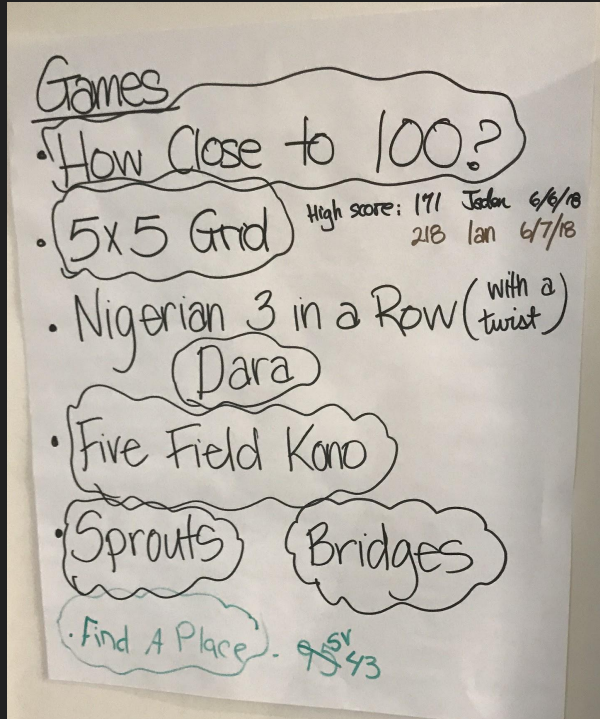 Games
• How Close to 100?
• 5x5 Grid High score: 171 Jaden 6/6/18
218 Ian 6/7/18
• Nigerian 3 in a Row (with a twist)
Dara
• Five Field Kono
• Sprouts Bridges
• Find A Place. 43